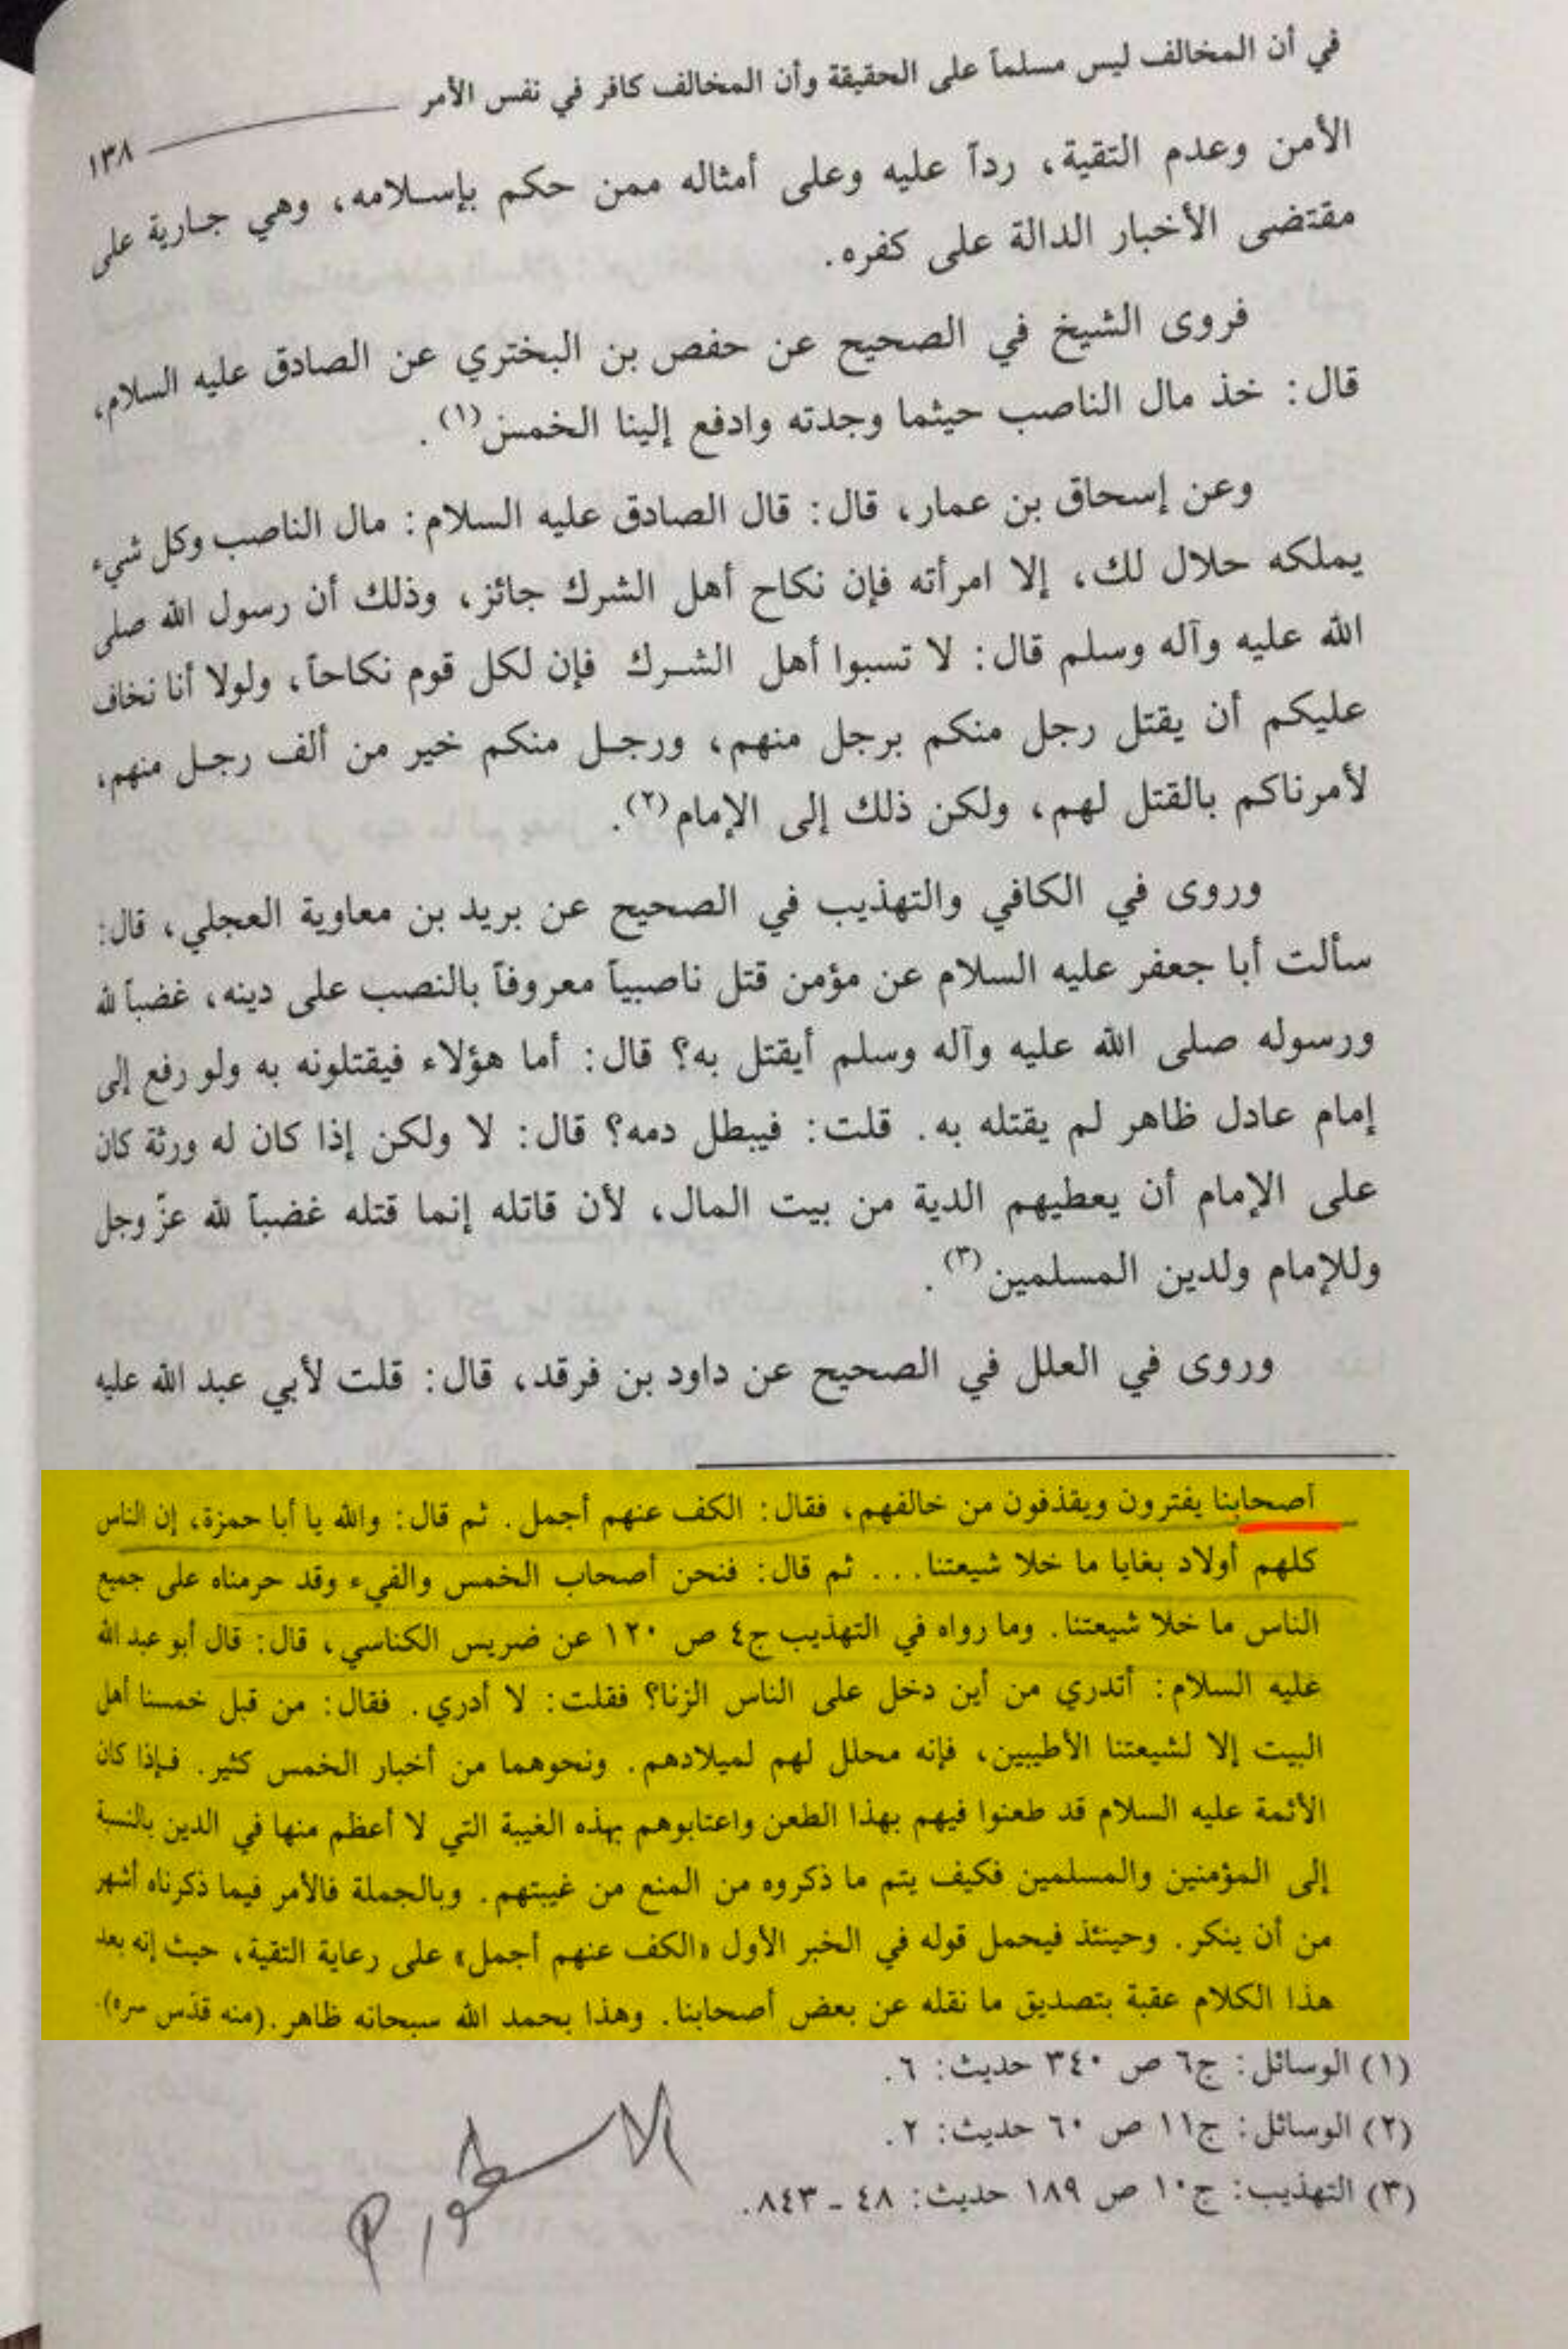 في أن المخالف ليس مسلماً على الحقيقة وأن المخالف كافر في نفس الأمر
١٣٨
الأمن وعدم التقية، رداً عليه وعلى أمثاله ممن حكم بإسلامه، وهي جارية على
مقتضى الأخبار الدالة على كفره.
فروى الشيخ في الصحيح عن حفص بن البختري عن الصادق عليه السلام،
قال: خذ مال الناصب حيثما وجدته وادفع إلينا الخمس(١).
وعن إسحاق بن عمار، قال: قال الصادق عليه السلام: مال الناصب وكل شيء
يملكه حلال لك، إلا امرأته فإن نكاح أهل الشرك جائز، وذلك أن رسول الله صلى
الله عليه وآله وسلم قال: لا تسبوا أهل الشرك فإن لكل قوم نكاحاً، ولولا أنا نخاف
عليكم أن يقتل رجل منكم برجل منهم، ورجل منكم خير من ألف رجل منهم،
لأمرناكم بالقتل لهم، ولكن ذلك إلى الإمام(٢).
وروى في الكافي والتهذيب في الصحيح عن بريد بن معاوية العجلي، قال:
سألت أبا جعفر عليه السلام عن مؤمن قتل ناصبياً معروفاً بالنصب على دينه، غضباً لله
ورسوله صلى الله عليه وآله وسلم أيقتل به؟ قال: أما هؤلاء فيقتلونه به ولو رفع إلى
إمام عادل ظاهر لم يقتله به. قلت: فيبطل دمه؟ قال: لا ولكن إذا كان له ورثة كان
على الإمام أن يعطيهم الدية من بيت المال، لأن قاتله إنما قتله غضباً لله عزّ وجل
وللإمام ولدين المسلمين(٣).
وروى في العلل في الصحيح عن داود بن فرقد، قال: قلت لأبي عبد الله عليه
أصحابنا يفترون ويقذفون من خالفهم، فقال: الكف عنهم أجمل. ثم قال: والله يا أبا حمزة، إن الناس
كلهم أولاد بغايا ما خلا شيعتنا... ثم قال: فنحن أصحاب الخمس والفيء وقد حرمناه على جميع
الناس ما خلا شيعتنا. وما رواه في التهذيب ج٤ ص ١٢٠ عن ضريس الكناسي، قال: قال أبو عبد الله
عليه السلام: أتدري من أين دخل على الناس الزنا؟ فقلت: لا أدري. فقال: من قبل خمسنا أهل
البيت إلا لشيعتنا الأطيبين، فإنه محلل لهم لميلادهم. ونحوهما من أخبار الخمس كثير. فإذا كان
الأئمة عليه السلام قد طعنوا فيهم بهذا الطعن واعتابوهم بهذه الغيبة التي لا أعظم منها في الدين بالنسبة
إلى المؤمنين والمسلمين فكيف يتم ما ذكروه من المنع من غيبتهم. وبالجملة فالأمر فيما ذكرناه أشهر
من أن ينكر. وحينئذ فيحمل قوله في الخبر الأول «الكف عنهم أجمل» على رعاية التقية، حيث إنه بعد
هذا الكلام عقبة بتصديق ما نقله عن بعض أصحابنا. وهذا بحمد الله سبحانه ظاهر. (منه قدّس سره).
(١) الوسائل: ج٦ ص ٣٤٠ حديث: ٦.
(٢) الوسائل: ج١١ ص ٦٠ حديث: ٢.
(٣) التهذيب: ج١٠ ص ١٨٩ حديث: ٤٨ - ٨٤٣.